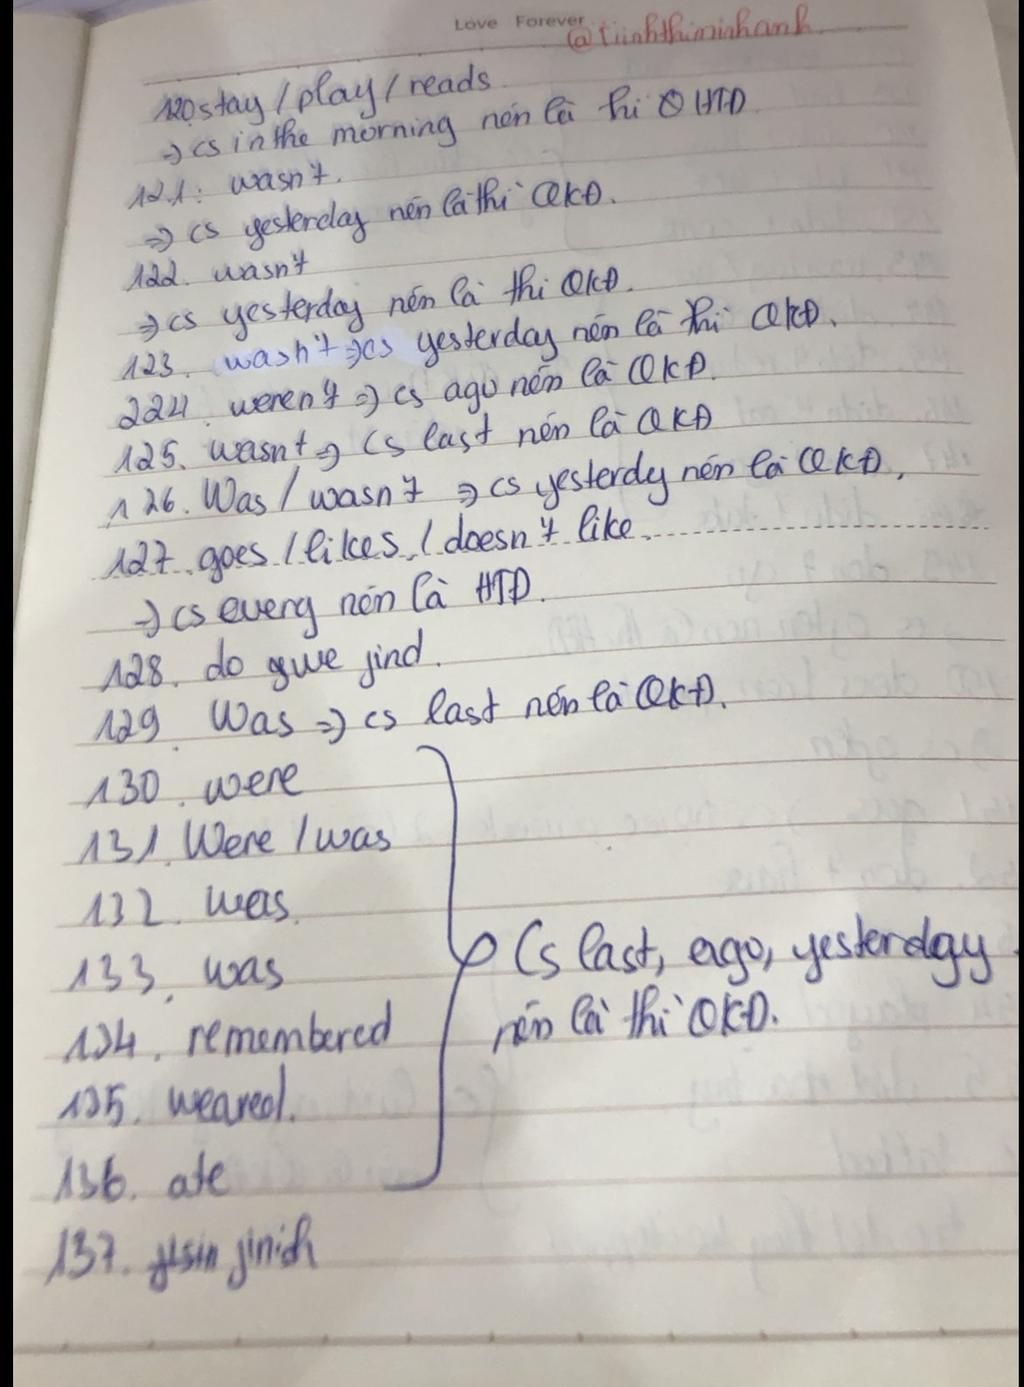 Love Forever
@tiinhthiminhanh
120 stay / play / reads
=> cs in the morning nên là thì HTĐ
121: wasn't.
=> cs yesterday nên là thì QKĐ.
122. wasn't
=> cs yesterday nên là thì QKĐ.
123. wasn't => cs yesterday nên là thì QKĐ.
224. weren't => cs ago nên là QKĐ.
125. wasn't => cs last nên là QKĐ
126. Was / wasn't => cs yesterdy nên là QKĐ,
127. goes / likes / doesn't like
=> cs every nên là HTĐ.
128. do
129. Was => cs last nên là QKĐ.
130. were
131. Were / was
132. was.
133. was
134. remembered
Cs last, ago, yesterday
nên là thì QKĐ.
135. weared.
136. ate
137.